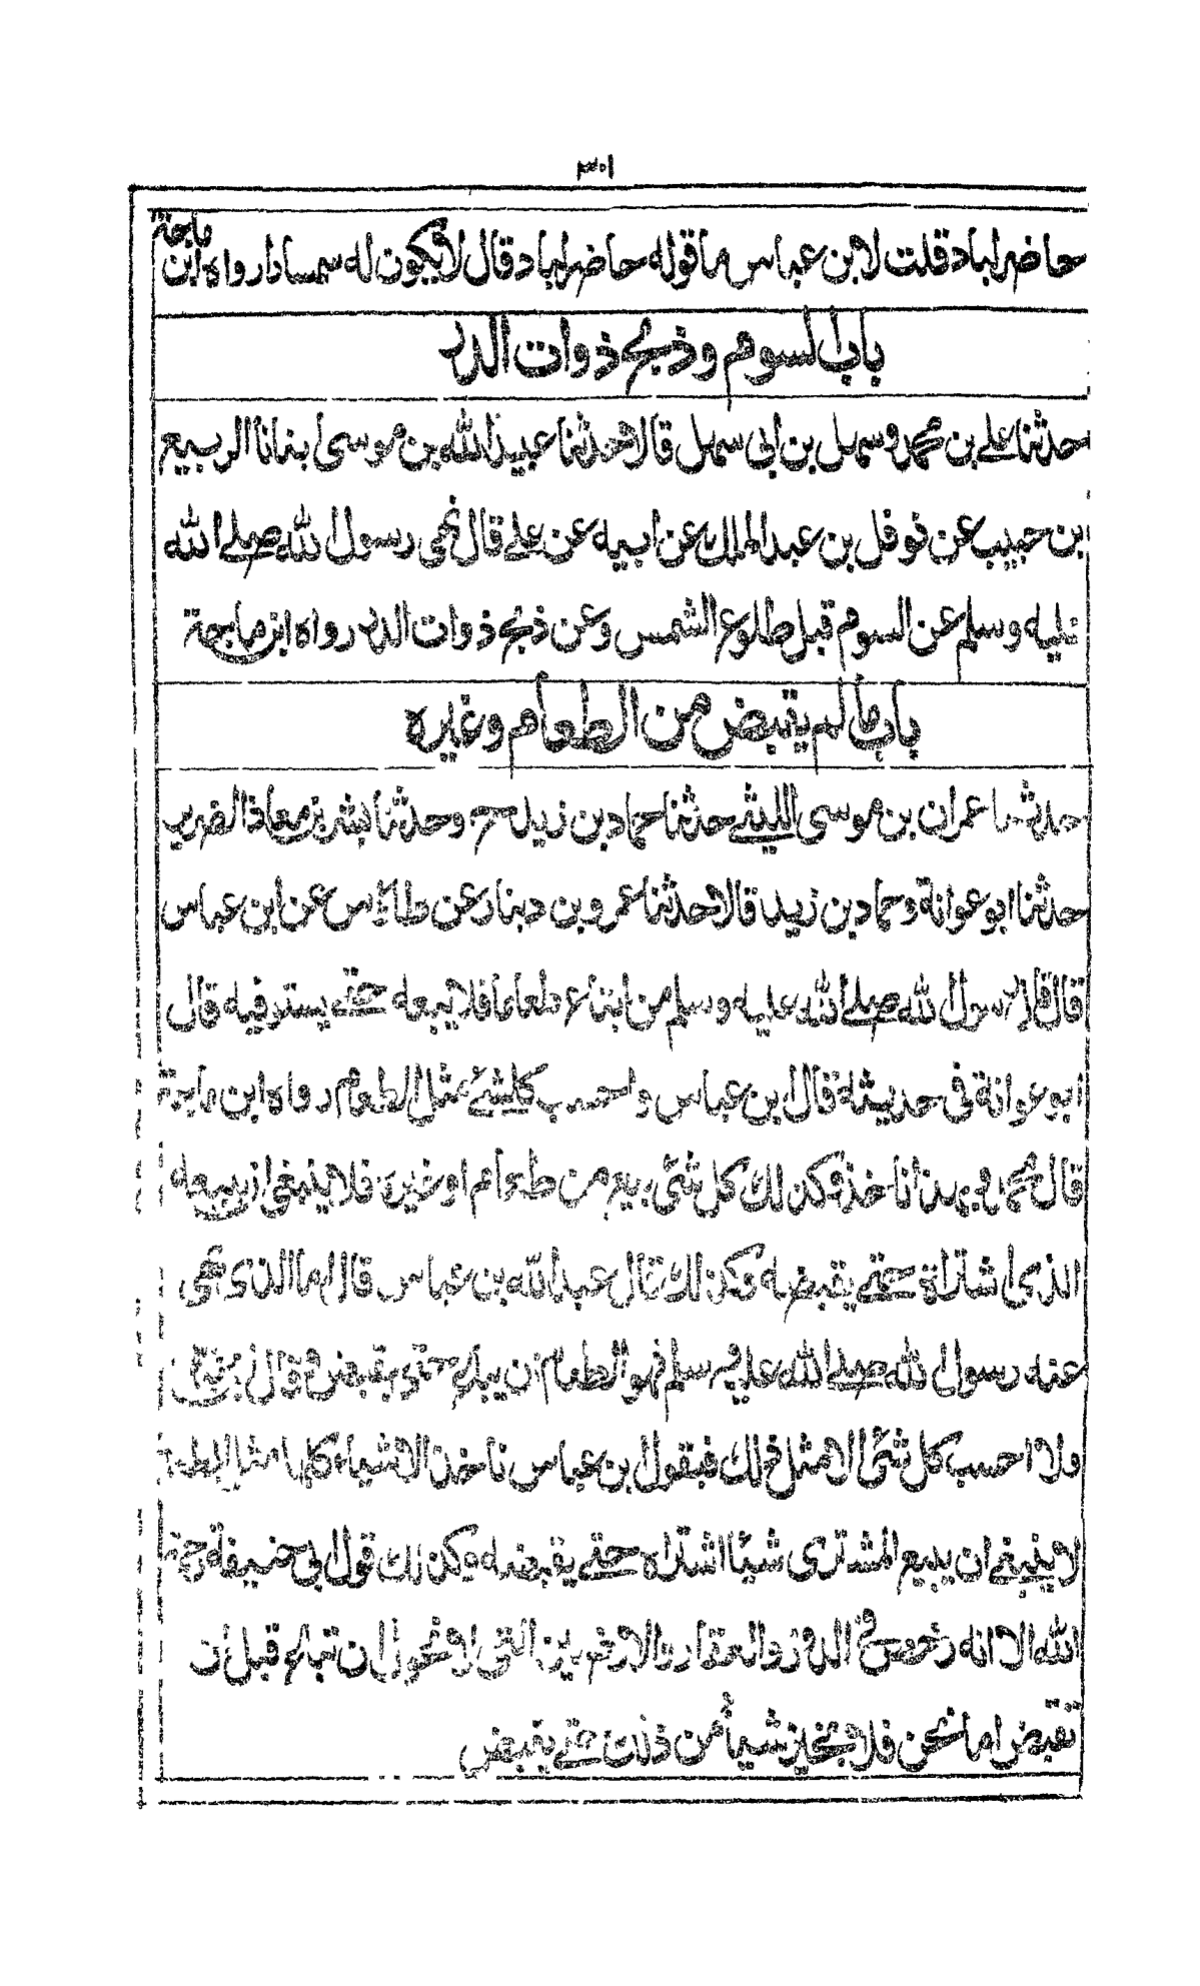 ٣٠١
حاضر لباد قلت لابن عباس ما قوله حاضر لباد قال لا يكون له سمسارا رواه ابن ماجة
باب السوم وذبح ذوات الدر
حدثنا على بن محمد وسهل بن ابى سهل قالا حدثنا عبيد الله بن موسى انبانا الربيع
بن حبيب عن نوفل بن عبد الملك عن ابيه عن على قال نهى رسول الله صلى الله
عليه وسلم عن السوم قبل طلوع الشمس وعن ذبح ذوات الدر رواه ابن ماجة
باب ما لم يقبض من الطعام وغيره
حدثنا عمران بن موسى الليثى حدثنا حماد بن زيد ح وحدثنا بشر بن معاذ الضرير
حدثنا ابو عوانة وحماد بن زيد قالا حدثنا عمرو بن دينار عن طاؤس عن ابن عباس
قال قال رسول الله صلى الله عليه وسلم من ابتاع طعاما فلا يبعه حتى يستوفيه قال
ابو عوانة فى حديثه قال ابن عباس واحسب كل شئ مثل الطعام رواه ابن ماجة
قال محمد وبهذا ناخذ وكذلك كل شئ بيع من طعام او غيره فلا ينبغى ان يبيعه
الذى اشتراه حتى يقبضه وكذلك قال عبد الله بن عباس قال اما الذى نهى
عنه رسول الله صلى الله عليه وسلم فهو الطعام ان يباع حتى يقبض وقال ابن عباس
ولا احسب كل شئ الا مثل ذلك فبقول بن عباس ناخذ الاشياء كلها مثل الطعام
لا ينبغى ان يبيع المشترى شيئا اشتراه حتى يقبضه وكذلك قول ابى حنيفة رحمة
الله الا انه رخص فى الدور والعقار والارضين التى لا تحول ان تباع قبل ان
تقبض اما نحن فلا نجيز شيأ من ذلك حتى يقبض